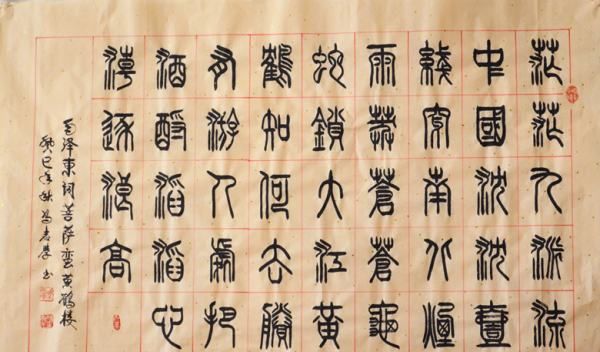 茫茫九派流
中國沈沈壹
綫穿南北煙
雨莽蒼蒼龜
蛇鎖大江黃
鶴知何去賸
有游人處把
酒酹滔滔心
潮逐浪高
毛泽東词菩萨蛮黄鹤楼
癸巳年秋